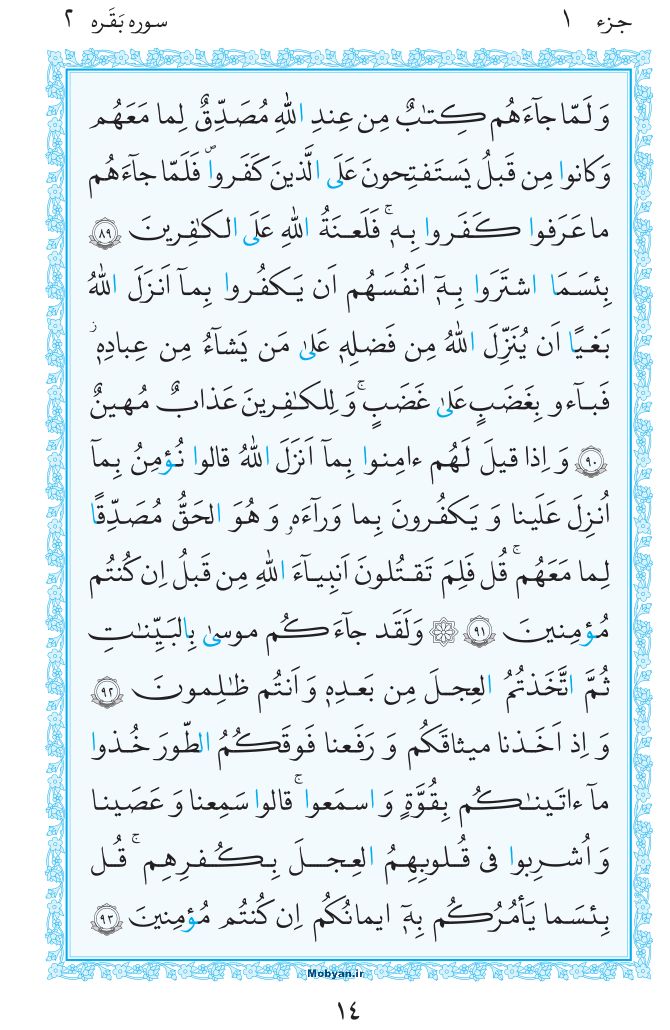 جزء ۱ سوره بَقَره ۲
وَ لَمّا جآءَهُم كِتٰبٌ مِن عِندِ اللّٰهِ مُصَدِّقٌ لِما مَعَهُم
وَ كانوا مِن قَبلُ يَستَفتِحونَ عَلَى الَّذينَ كَفَروا ۖ فَلَمّا جآءَهُم
ما عَرَفوا كَفَروا بِهٖ ۚ فَلَعنَةُ اللّٰهِ عَلَى الكٰفِرينَ ﴿۸۹﴾
بِئسَمَا اشتَرَوا بِهٖٓ اَنفُسَهُم اَن يَكفُروا بِمآ اَنزَلَ اللّٰهُ
بَغيًا اَن يُنَزِّلَ اللّٰهُ مِن فَضلِهٖ عَلىٰ مَن يَشآءُ مِن عِبادِهٖ ۖ
فَبآءو بِغَضَبٍ عَلىٰ غَضَبٍ ۚ وَ لِلكٰفِرينَ عَذابٌ مُهينٌ
﴿۹۰﴾ وَ اِذا قيلَ لَهُم ءامِنوا بِمآ اَنزَلَ اللّٰهُ قالوا نُؤمِنُ بِمآ
اُنزِلَ عَلَينا وَ يَكفُرونَ بِما وَرآءَهٗ وَ هُوَ الحَقُّ مُصَدِّقًا
لِما مَعَهُم ۗ قُل فَلِمَ تَقتُلونَ اَنبِيآءَ اللّٰهِ مِن قَبلُ اِن كُنتُم
مُؤمِنينَ ﴿۹۱﴾ ۞ وَلَقَد جآءَكُم موسىٰ بِالبَيِّنٰتِ
ثُمَّ اتَّخَذتُمُ العِجلَ مِن بَعدِهٖ وَ اَنتُم ظٰلِمونَ ﴿۹۲﴾
وَ اِذ اَخَذنا ميثاقَكُم وَ رَفَعنا فَوقَكُمُ الطّورَ خُذوا
مآ ءاتَينٰكُم بِقُوَّةٍ وَ اسمَعوا ۖ قالوا سَمِعنا وَ عَصَينا
وَ اُشرِبوا فى قُلوبِهِمُ العِجلَ بِكُفرِهِم ۚ قُل
بِئسَما يَأمُرُكُم بِهٖٓ ايمانُكُم اِن كُنتُم مُؤمِنينَ ﴿۹۳﴾
Mobyan.ir
۱۴